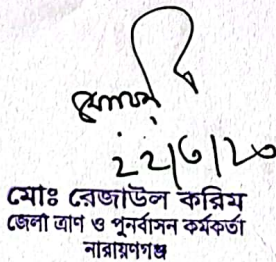 ২২/৩/২০
মোঃ রেজাউল করিম
জেলা ত্রাণ ও পুনর্বাসন কর্মকর্তা
নারায়ণগঞ্জ